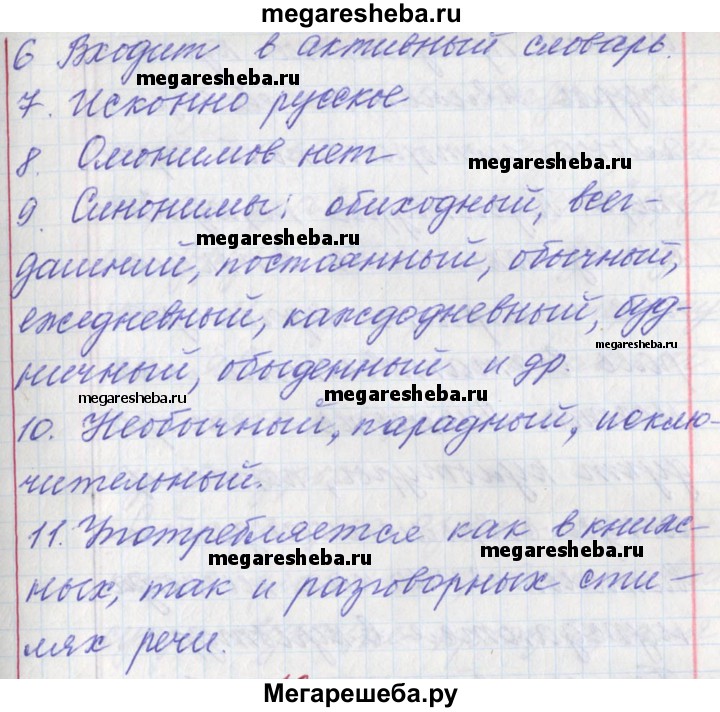 megaresheba.ru
6 Входит в активный словарь.
megaresheba.ru
7. Исконно русское
8. Омонимов нет
megaresheba.ru
9. Синонимы: обиходный, всег-
megaresheba.ru
дашний, постоянный, обычный,
ежедневный, каждодневный, буд-
megaresheba.ru
ничный, обыденный и др.
megaresheba.ru megaresheba.ru
10. Необычный, парадный, исклю-
чительный.
11. Употребляется как в книж-
megaresheba.ru megaresheba.ru
ных, так и разговорных сти-
лях речи.
Мегарешеба.ру